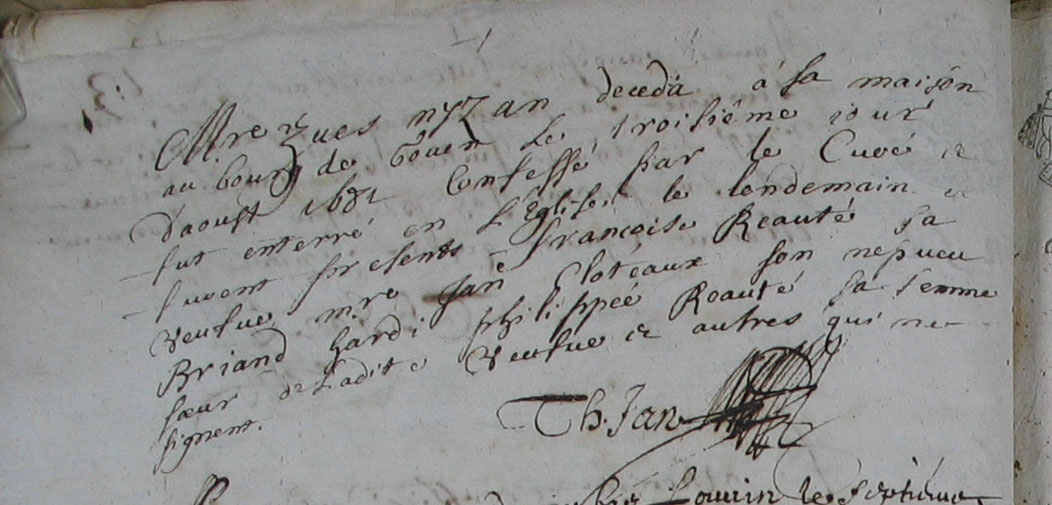 Mre yves nyzan decedà à sa maisõn
au bourg de bouen le troisiéme iour
d'aoust 1682 Confessé par le Curé &
fut enterré en L'Eglise le lendemain &
furent presents françoise Reauté sa
veufue mre Jan Cloteaux son nepueu
Briand hardi philippée Reauté sa femme
sœur de Ladite veufue & autres qui ne
signent.
Th. Jan
Louvin le septiéme